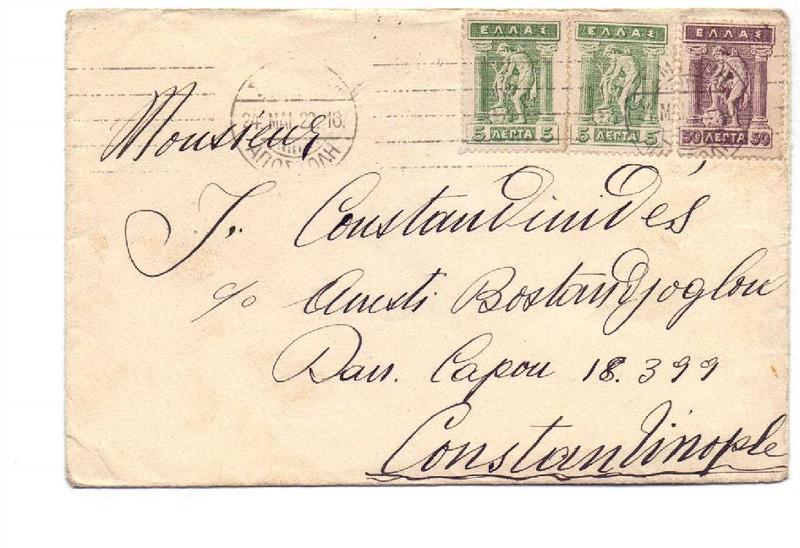 ΕΛΛΑΣ ΕΛΛΑΣ ΕΛΛΑΣ
5 ΛΕΠΤΑ 5 5 ΛΕΠΤΑ 5 50 ΛΕΠΤΑ 50
24. ΜΑΪ. 22. 16.
ΑΠΟΣΤΟΛΗ
Monsieur
J. Constandinidés
c/o Anesti Bostandjoglou
Capou 18.399
Constantinople